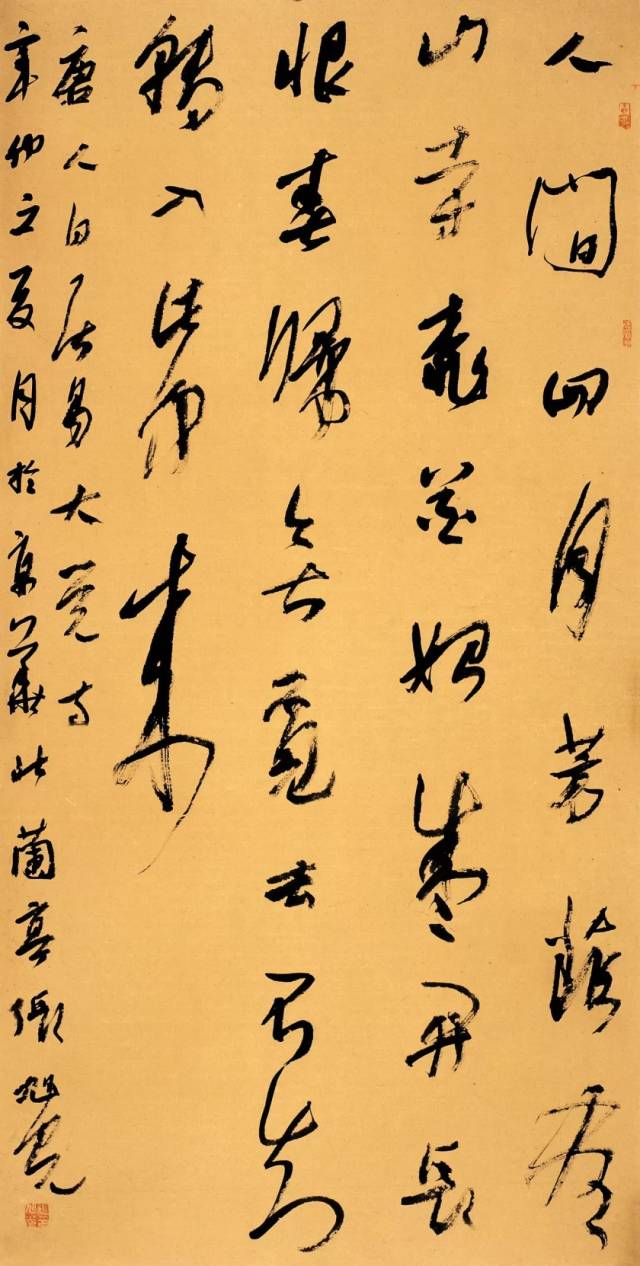 人間四月芳菲盡
山寺桃花始盛開長
恨春歸無覓處不知
轉入此中來
唐人白居易大覺寺
辛卯立夏月於京華北蘭亭張旭光